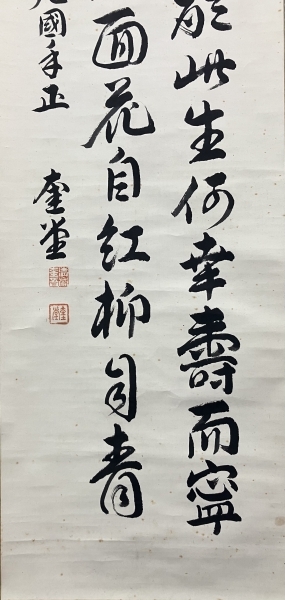 於此生何幸壽而寧
面花自紅柳自青
國手正
奎堂